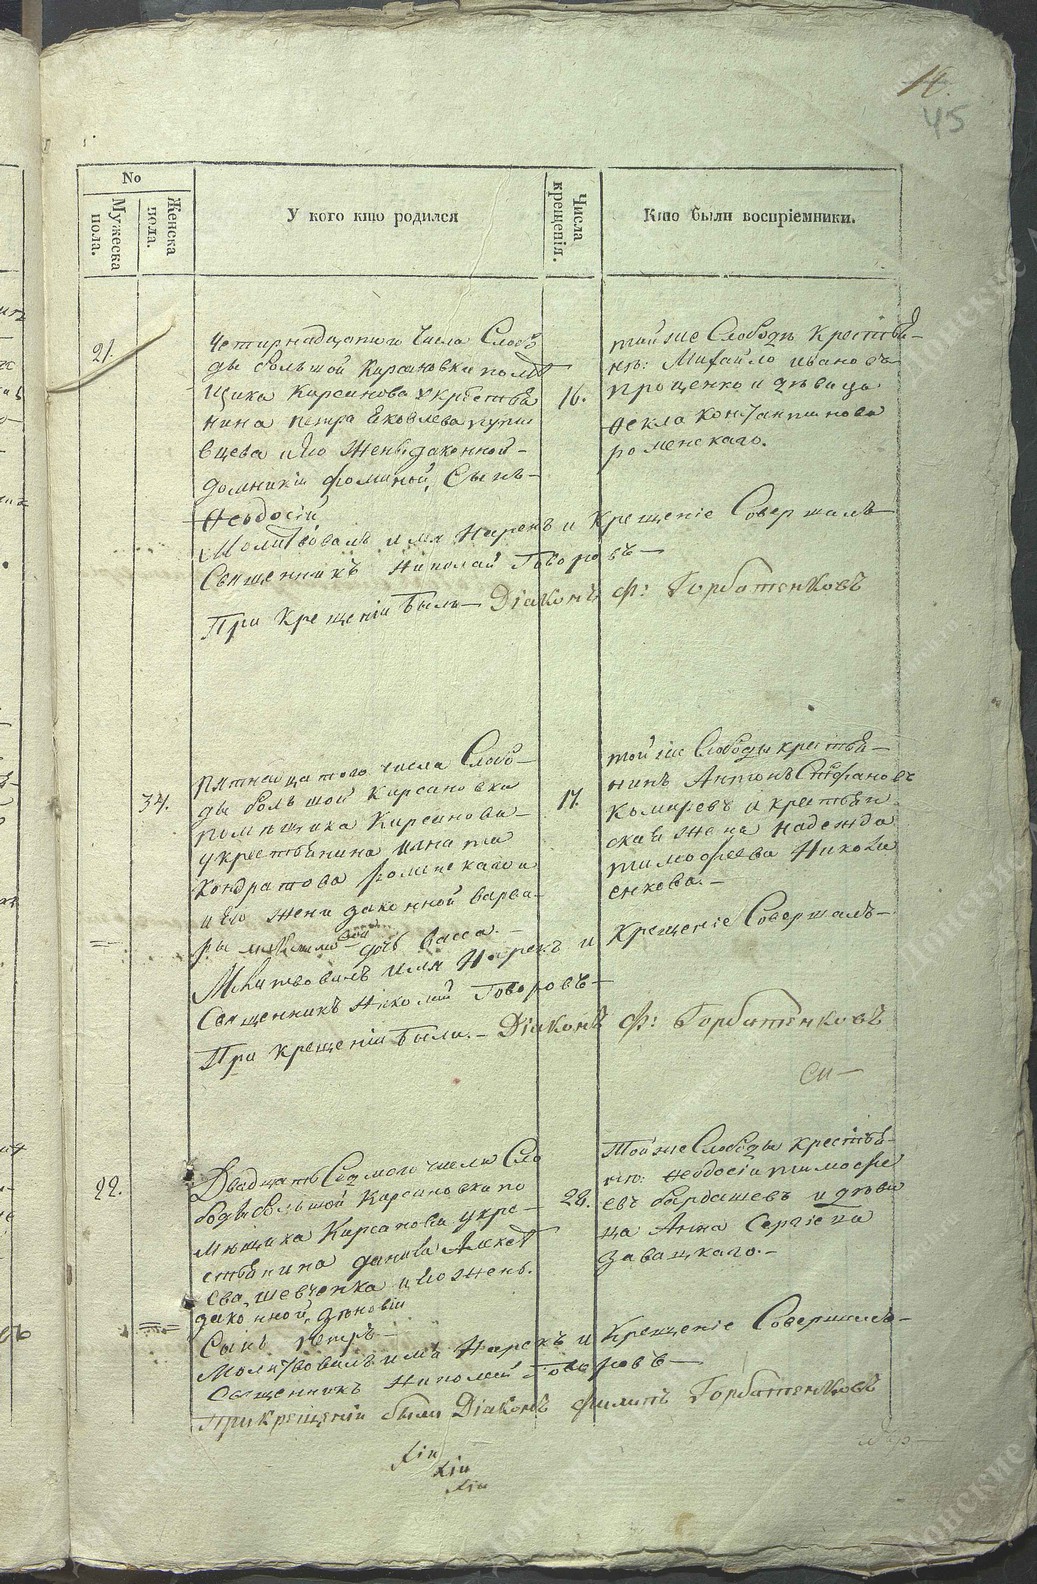 14.
45
No
Мужеска пола.
Женска пола.
У кого кто родился
Числа крещенія.
Кто были воспріемники.
21.
четырнадцатого числа Слобо
ды большой Кирсановки помѣ
щика Кирсанова у крестья
нина петра Яковлева
вцева и его жены законной
домникіи фоминой, Сынъ
Ѳеодосій
16.
той же Слободы крестья
нъ: Михайло иванова
Проценко и дѣвица
Ѳекла Константинова
роменскаго.
Молитвовалъ имя Нарекъ и Крещеніе Совершалъ
Священникъ Николай Говоровъ
При Крещеніи былъ Діаконъ Ф: Горбатенковъ
34.
пятнацатого числа Слобо
ды большой Кирсановки
помѣщика Кирсанова
у крестьянина игната
Кондратова роменскаго и
и его жены законной варва
ры дочь Васса.
17.
той же Слободы крестья
нинъ Антонъ Стефановъ
крестьян
ская жена надежда
тимофеева Никола
енкова.
Молитвовалъ имя Нарекъ и Крещеніе Совершалъ
Священникъ Николай Говоровъ
При крещеніи были Діаконъ Ф: Горбатенковъ
22.
Двадцать Седмого числа Сло
боды большой Кирсановки по
мѣщика Кирсанова у кре
стьянина данила
ева, шевченка и его жены
законной, зѣновіи
Сынъ петръ
28.
той же Слободы крестья
нъ: Ѳеодосій тимофе
евъ бардашевъ и дѣви
ца Анна Сергіева
завацкаго.
Молитвовалъ имя Нарекъ и Крещеніе Совершалъ
Священникъ Николай Говоровъ
При крещеніи были Діаконъ филипъ Горбатенковъ